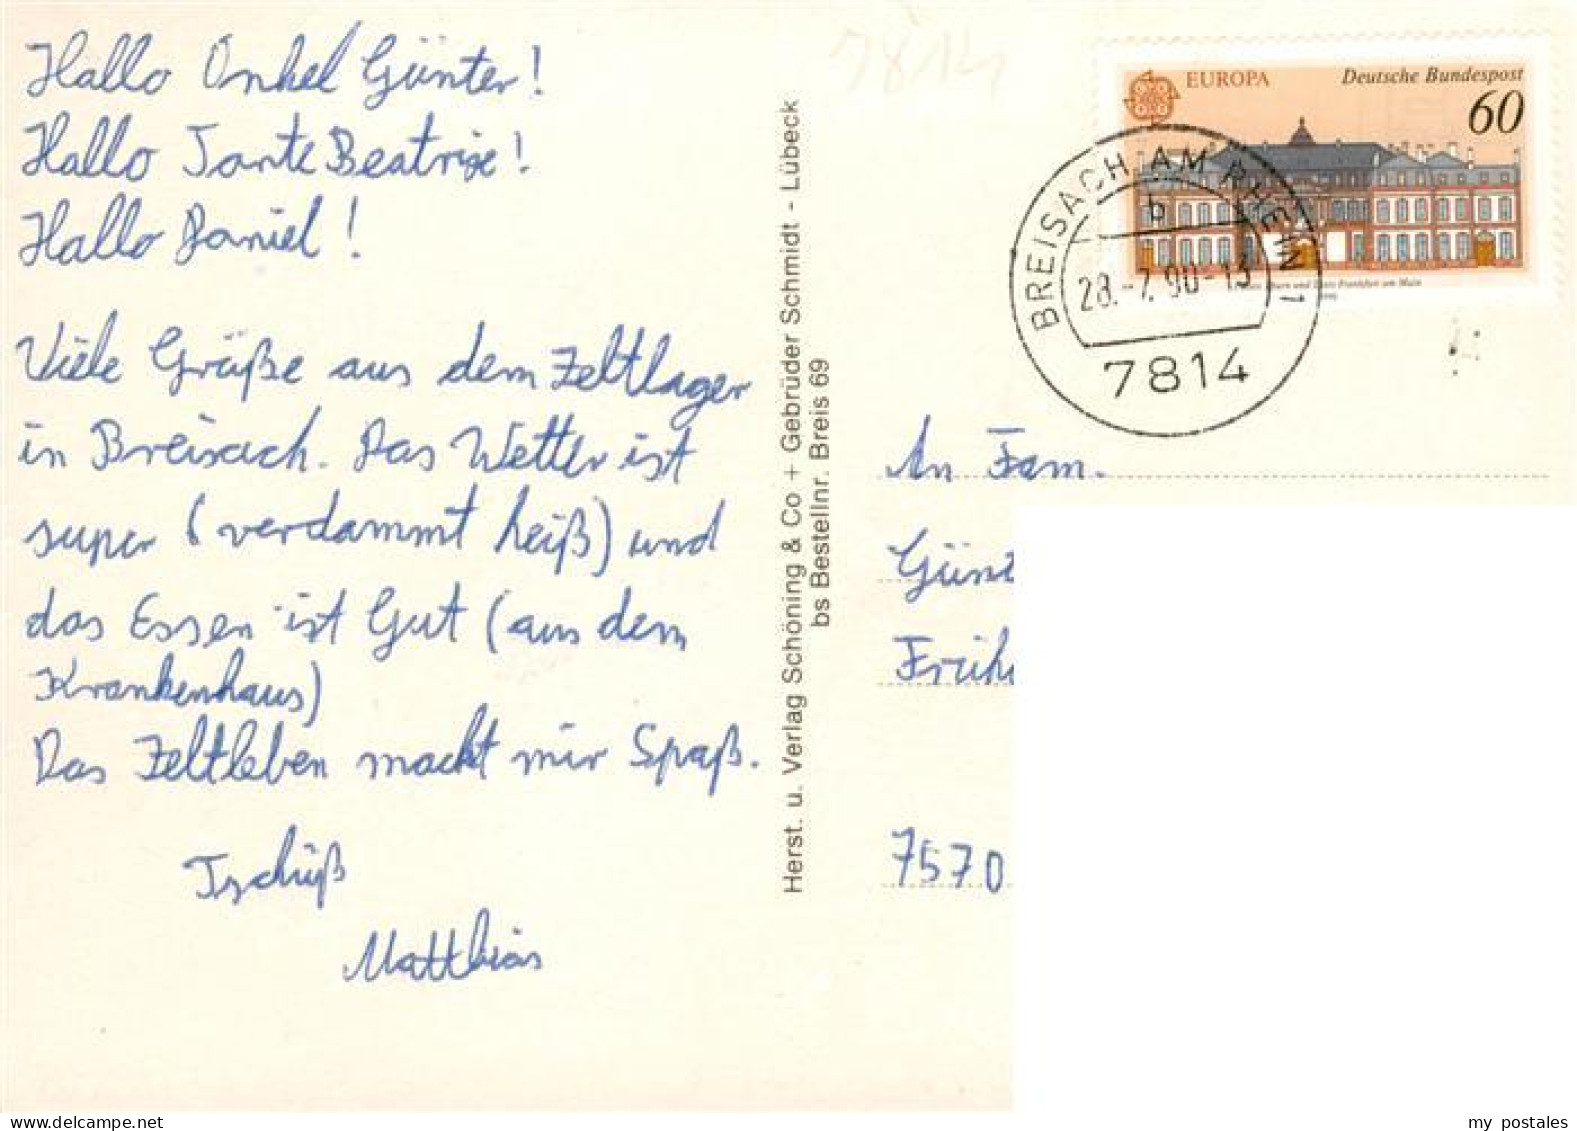 Hallo Onkel Günter!
Hallo Tante Beatrixe!
Hallo Daniel!
Viele Grüße aus dem Zeltlager
in Breisach. Das Wetter ist
super (verdammt heiß) und
das Essen ist Gut (aus dem
Krankenhaus)
Das Zeltleben macht mir Spaß.
Tschüß
Matthias
Herst. u. Verlag Schöning & Co + Gebrüder Schmidt - Lübeck
bs Bestellnr. Breis 69
7814
EUROPA
Deutsche Bundespost
60
Frankfurt am Main
1990
BREISACH AM RHEIN 1
b
28.-7.90-13
7814
An Fam.
Günt
Früh
7570
my postales